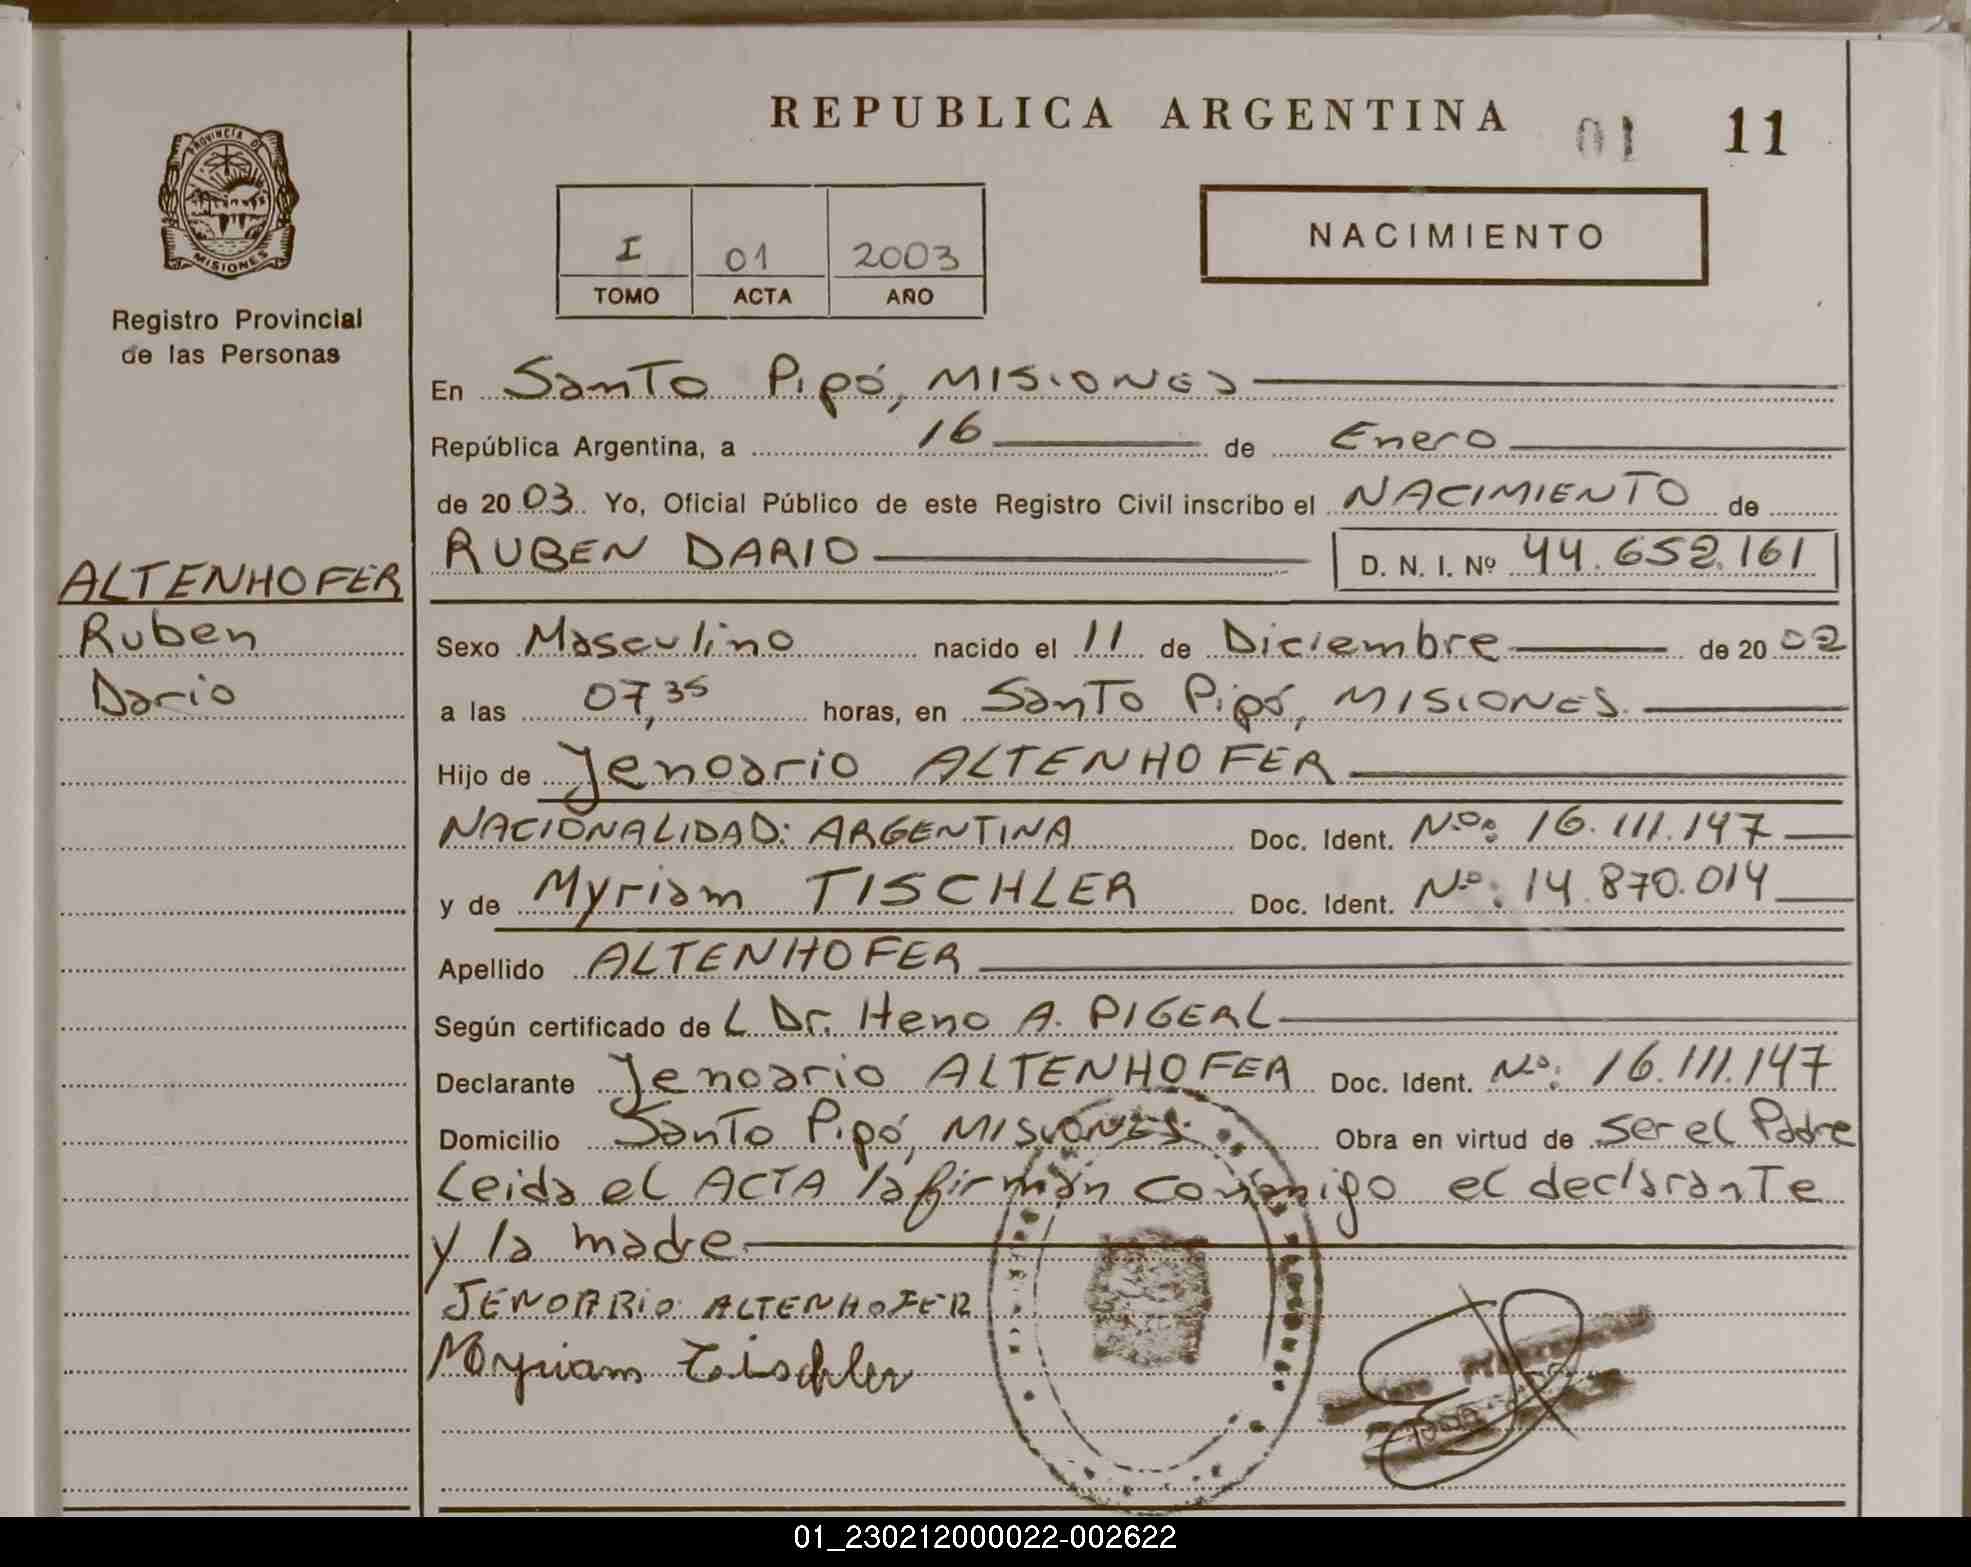 REPUBLICA ARGENTINA 01 11
PROVINCIA DE
MISIONES
Registro Provincial
de las Personas
I 01 2003
TOMO ACTA AÑO
NACIMIENTO
En Santo Pipó, MISIONES
República Argentina, a 16 de Enero
de 2003 Yo, Oficial Público de este Registro Civil inscribo el NACIMIENTO de
RUBEN DARIO D. N. I. Nº 44.652.161
ALTENHOFER
Ruben
Dario
Sexo Masculino nacido el 11 de Diciembre de 2002
a las 07,35 horas, en Santo Pipó, MISIONES.
Hijo de Jenoario ALTENHOFER
NACIONALIDAD: ARGENTINA Doc. Ident. Nº: 16.111.147
y de Myriam TISCHLER Doc. Ident. Nº: 14.870.014
Apellido ALTENHOFER
Según certificado de L Dr. Heno A. PIGERL
Declarante Jenoario ALTENHOFER Doc. Ident. Nº: 16.111.147
Domicilio Santo Pipó, MISIONES. Obra en virtud de ser el Padre
Leida el ACTA la firman conmigo el declarante
y la madre.
JENOARIO ALTENHOFER
Myriam Tischler
01_230212000022-002622